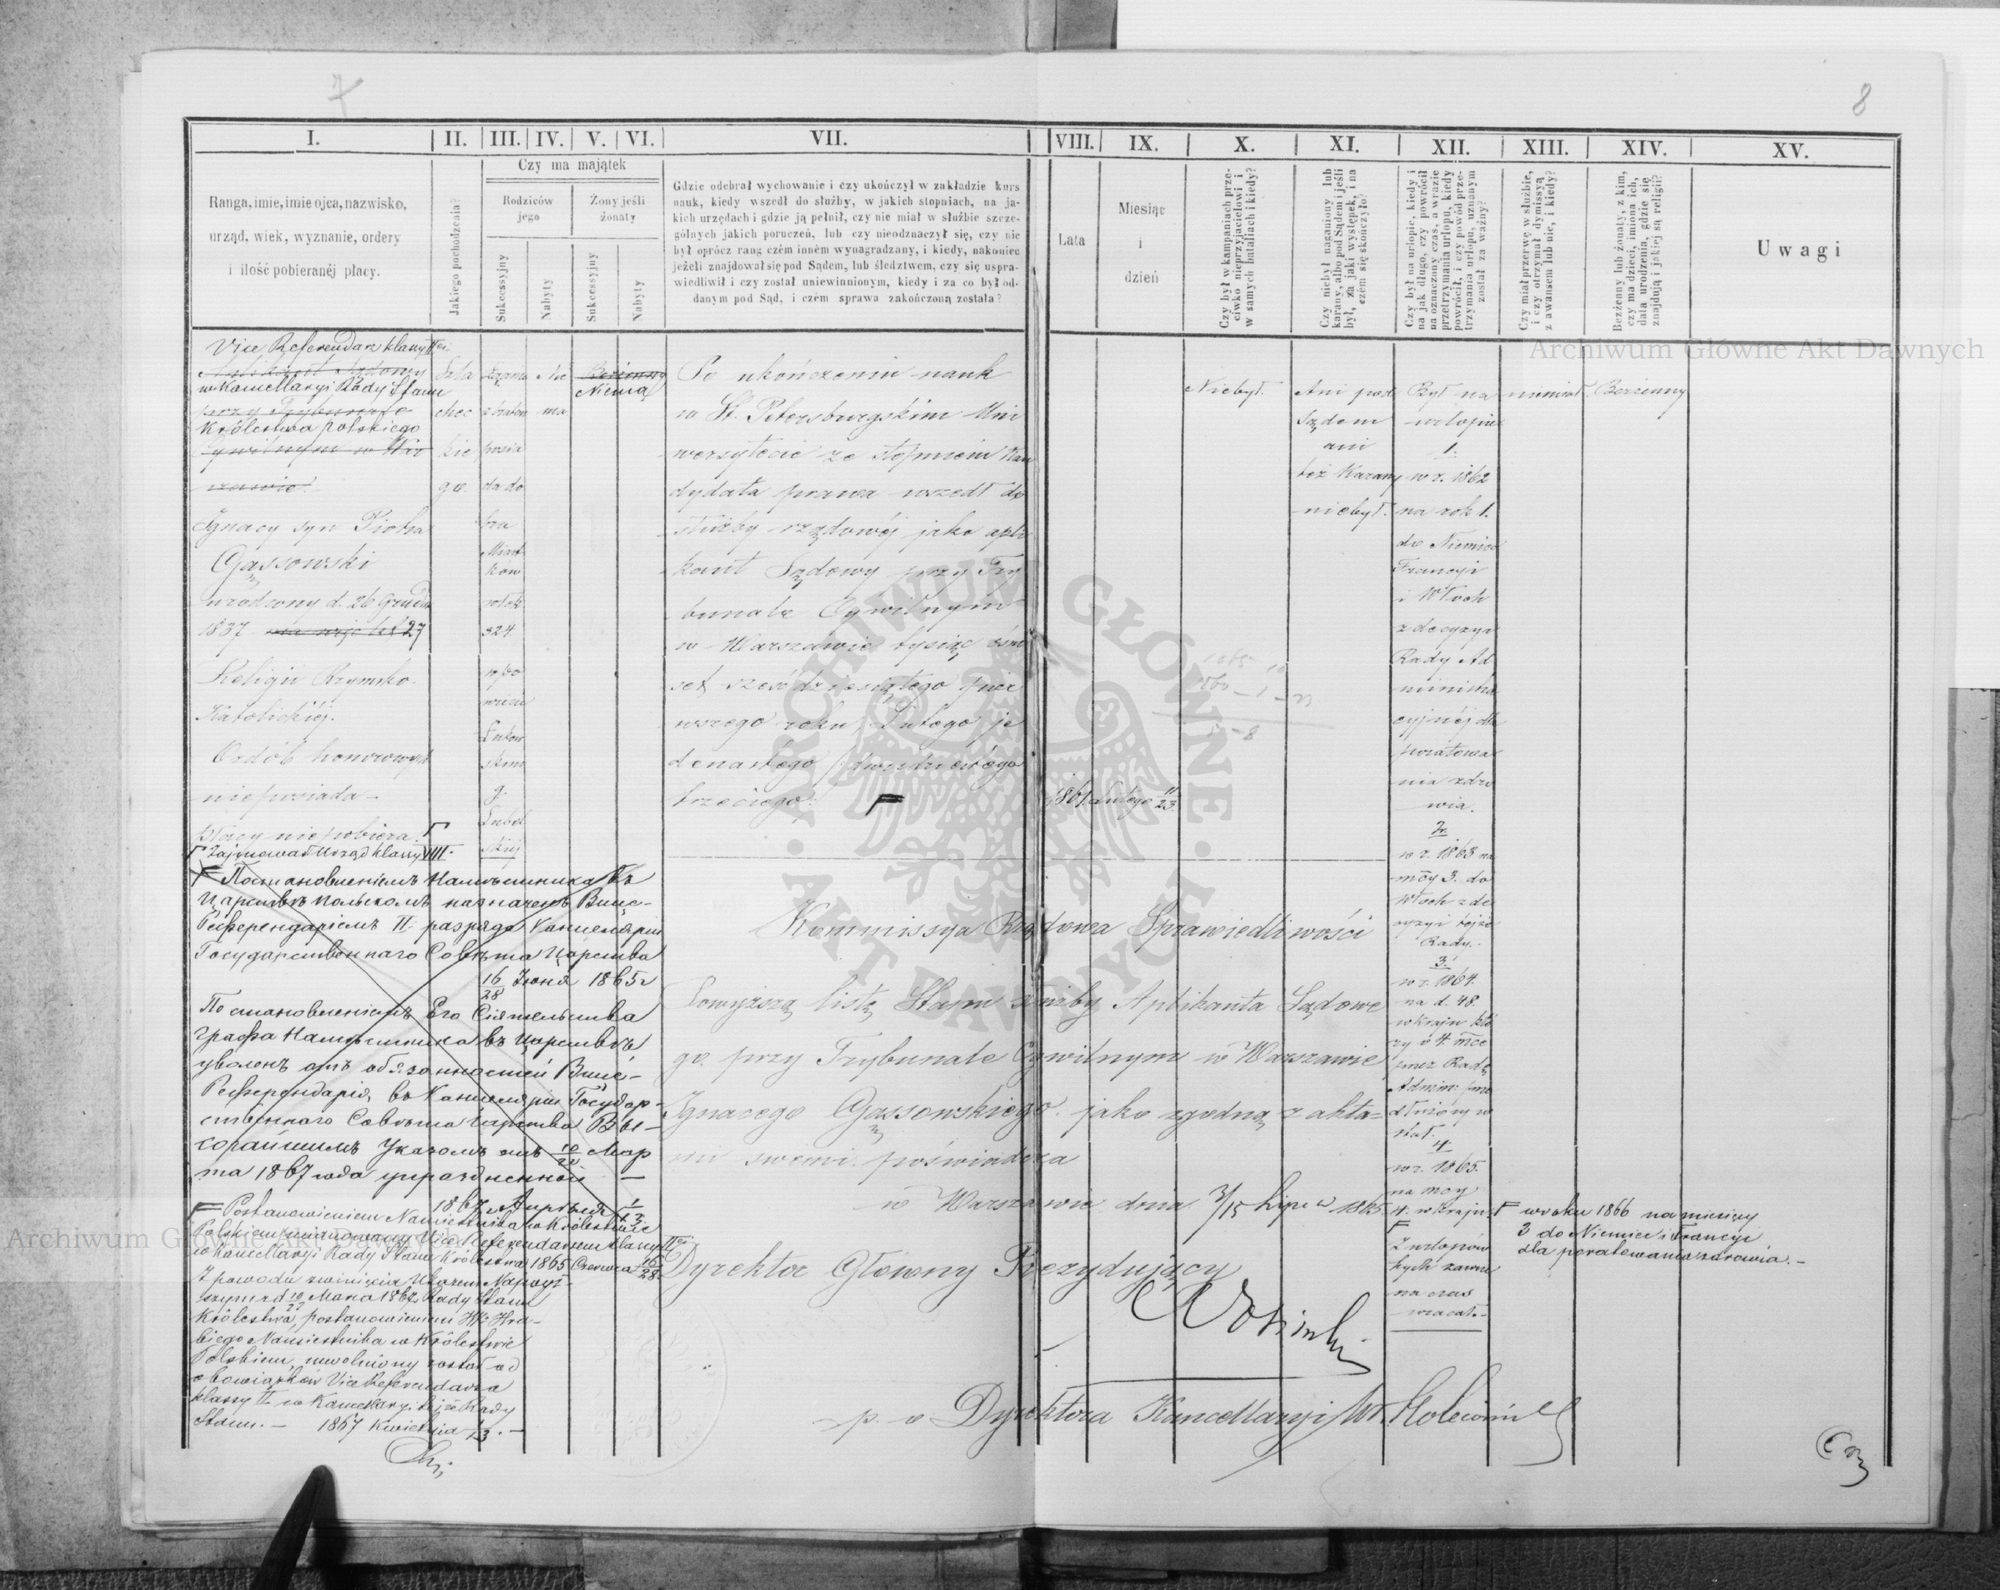 7
8
I.
II.
III.
IV.
V.
VI.
VII.
VIII.
IX.
X.
XI.
XII.
XIII.
XIV.
XV.
Ranga, imie, imie ojca, nazwisko,
urząd, wiek, wyznanie, ordery
i ilość pobieranéj płacy.
Jakiego pochodzenia?
Czy ma majątek
Rodziców
jego
Żony jeśli
żonaty
Sukcessyjny
Nabyty
Sukcessyjny
Nabyty
Gdzie odebrał wychowanie i czy ukończył w zakładzie kurs
nauk, kiedy wszedł do służby, w jakich stopniach, na ja-
kich urzędach i gdzie ją pełnił, czy nie miał w służbie szcze-
gólnych jakich poruczeń, lub czy nieodznaczył się, czy nie
był oprócz rang czém inném wynagradzany, i kiedy, nakoniec
jeżeli znajdował się pod Sądem, lub śledztwem, czy się uspra-
wiedliwił i czy został uniewinnionym, kiedy i za co był od-
danym pod Sąd, i czém sprawa zakończoną została?
Lata
Miesiąc
i
dzień
Czy był w kampaniach prze-
ciwko nieprzyjacielowi i
w samych bataliach i kiedy?
Czy niebył naganiony lub
karany, albo pod Sądem i jeśli
był, za jaki występek, i na
czém się skończyło?
Czy był na urlopie, kiedy i
na jak długo, czy powrócił
na oznaczony czas, a w razie
przetrzymania urlopu, kiedy
powrócił, i czy powód prze-
trzymania urlopu, uznanym
został za ważny?
Czy miał przerwę w służbie,
i czy otrzymał dymissyą
z awansem lub nie, i kiedy?
Bezżenny lub żonaty, z kim,
czy ma dzieci, imiona ich,
data urodzenia, gdzie się
znajdują i jakiej są religii?
Uwagi
Vice Referendarz klassy II ej
Aplikant Sądowy
w Kancellaryi Rady Stanu
przy Trybunale
Królestwa polskiego
Cywilnym w War
szawie.
Ignacy syn Piotra
Gąssowski
urodzony d. 26 Grudn
1837 ma więc lat 27
Religii Rzymsko
Katolickiéj.
Ozdób honorowych
nieposiada -
płacy niepobiera.
Zajmował urząd klassy VIII.
Szla
chec
kie
go.
posia
da do
bra
Miast
ków
324
g.
Lubel
skiej
Nie
ma
Bezżenny
Niema
Po ukończeniu nauk
w St. Petersburgskim Uni
wersytecie ze stopniem Kan
dydata prawa wszedł do
służby rządowéj jako apli
kant Sądowy przy Try
bunale Cywilnym
w Warszawie tysiąc ośm
set sześćdziesiątego pier
wszego roku Lutego je
denastego / dwudziestego
trzeciego.
1861 Lutego 11/23
Niebył.
Ani pod
Sądem
ani
też Karany
niebył.
Był na
urlopie
1.
w r. 1862
na rok 1.
do Niemiec
Francyi
i Włoch
z decyzyi
Rady Ad
ministra
cyjnéj dla
poratowa
nia zdro
wia.
2.
w r. 1863 na
mcy 3. do
Włoch z de
cyzyi tejże
Rady.
3.
w r. 1864.
na d. 48.
w kraju
przez Radę
4.
w r. 1865.
na mcy
4. w kraju.
Z urlopów
tych zawsze
na czas
wracał. -
niemiał.
Bezżenny
Постановленіемъ Намѣстника въ
Царствѣ Польскомъ назначенъ Вице-
Референдаріемъ II разряда Канцеляріи
Государственнаго Совѣта Царства
16/28 Іюня 1865 г
Постановленіемъ Его Сіятельства
графа Намѣстника въ Царствѣ
уволенъ отъ обязанностей Вице-
Референдарія, въ Канцеляріи Государ-
ственнаго Совѣта Царства Вы-
сочайшимъ Указомъ отъ 10/22 Мар
та 1867 года упраздненной. —
1867 Апрѣля 1/13
Postanowieniem Namiestnika w Królestwie
Polskiem mianowany Vice Referendarzem klassy II ej
w Kancellaryi Rady Stanu Królestwa 1865 Czerwca 16/28.
Z powodu zwinięcia Ukazem Najwyż-
szym z d 10/22 Marca 1867 Rady Stanu
Królestwa, postanowieniem JW Hra-
biego Namiestnika w Królestwie
Polskiem, uwolniony został od
obowiązków Vice Referendarza
klassy II w Kancellaryi tejże Rady
Stanu. — 1867 Kwietnia 1/13. —
Kommissyja Rządowa Sprawiedliwości
Powyższą listę Stanu służby Aplikanta Sądowe
go przy Trybunale Cywilnym w Warszawie
Ignacego Gąssowskiego jako zgodną z akta=
mi swemi poświadcza
w Warszawie dnia 3/15 Lipca 1865.
Dyrektor Główny Prezydujący
p. o Dyrektora Kancellaryi
w roku 1866 na miesięcy
3 do Niemiec i Francyi
dla poratowania zdrowia. -
Archiwum Główne Akt Dawnych
Archiwum Główne Akt Dawnych
ARCHIWUM GŁÓWNE
AKT DAWNYCH